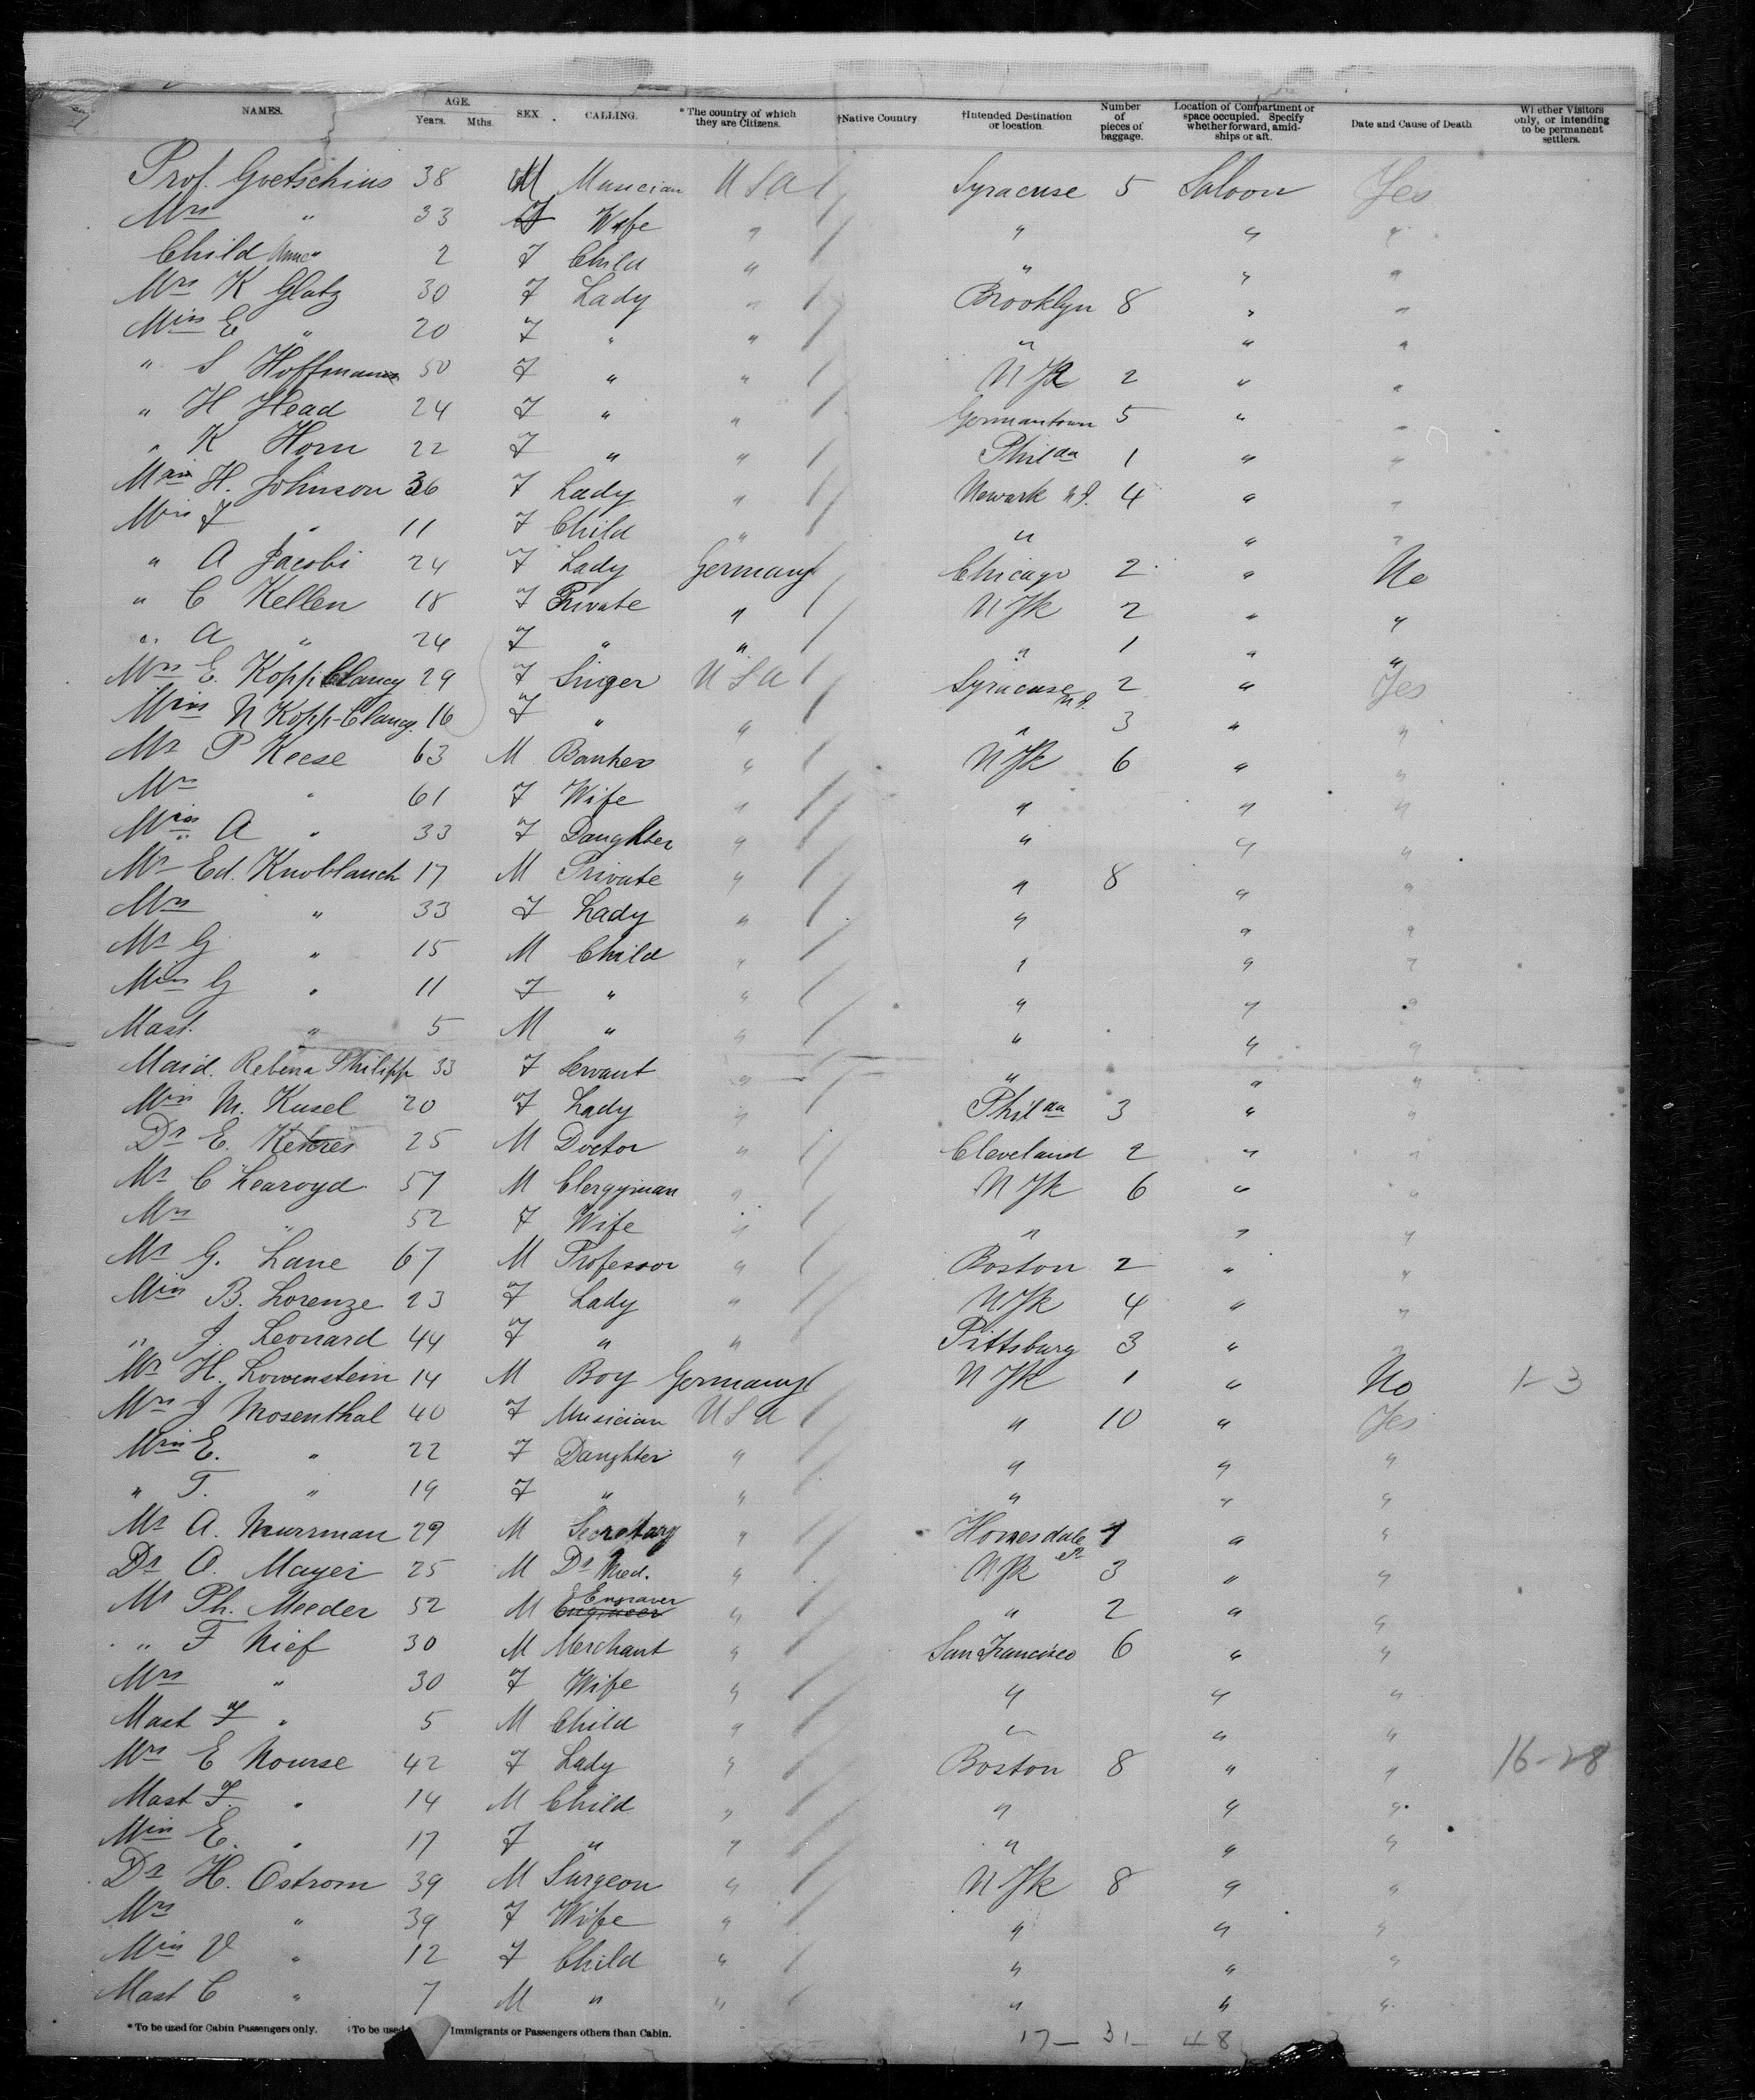 NAMES. AGE. Years. Mths. SEX. CALLING. *The country of which they are Citizens. †Native Country †Intended Destination or location. Number of pieces of baggage. Location of Compartment or space occupied. Specify whether forward, amidships or aft. Date and Cause of Death Whether Visitors only, or intending to be permanent settlers.
Prof. Goetschius 38 M Musician USA Syracuse 5 Saloon Yes
Mrs " 33 F Wife " " " "
Child " 2 F Child " " " "
Mrs K Glatz 30 F Lady " Brooklyn 8 " "
Miss E " 20 F " " " " "
" S Hoffmann 50 F " " N Yk 2 " "
" H Head 24 F " " Germantown 5 " "
" K Horn 22 F " " Philda 1 " "
Mrs H. Johnson 36 F Lady " Newark N.J. 4 " "
Miss F " 11 F Child " " " "
" A Jacobi 24 F Lady Germany Chicago 2 " No
" C Kellen 18 F Private " N Yk 2 " "
" A " 24 F " " " 1 " "
Mrs E. Kopp Clancy 29 F Singer USA Syracuse 2 " Yes
Miss N Kopp-Clancy. 16 F " " " 3 " "
Mr P Keese 63 M Banker " N Yk 6 " "
Mrs " 61 F Wife " " " "
Miss A " 33 F Daughter " " " "
Mr Ed. Knoblauch 17 M Private " " 8 " "
Mrs " 33 F Lady " " " "
Mr G " 15 M Child " " " "
Miss G " 11 F " " " " "
Mast. " 5 M " " " " "
Maid. Rebena Philipp 33 F Servant " " " "
Miss M. Kusel 20 F Lady " Philda 3 " "
Dr E. 25 M Doctor " Cleveland 2 " "
Mr C Learoyd 57 M Clergyman " N Yk 6 " "
Mrs " 52 F Wife " " " "
Mr G. Lane 67 M Professor " Boston 2 " "
Miss B. Lorenze 23 F Lady " N Yk 4 " "
" J. Leonard 44 F " " Pittsburg 3 " "
Mr H. Lowenstein 14 M Boy Germany N Yk 1 " No 1-3
Mrs J Mosenthal 40 F Musician USA " 10 " Yes
Miss E. " 22 F Daughter " " " "
" T. " 19 F " " " " "
Mr A. Murrman 29 M Secretary " Honesdale 1 " "
Dr O. Mayer 25 M Dr Med. " N Yk 3 " "
Mr Ph. Meeder 52 M Engineer Engraver " " 2 " "
" F Nief 30 M Merchant " San Francisco 6 " "
Mrs " 30 F Wife " " " "
Mast F " 5 M Child " " " "
Mrs E Nourse 42 F Lady " Boston 8 " " 16-28
Mast F. " 14 M Child " " " "
Miss E. " 17 F " " " " "
Dr H. Ostrom 39 M Surgeon " N Yk 8 " "
Mrs " 39 F Wife " " " "
Miss V " 12 F Child " " " "
Mast C " 7 M " " " " "
*To be used for Cabin Passengers only. †To be used Immigrants or Passengers others than Cabin.
17- 31- 48